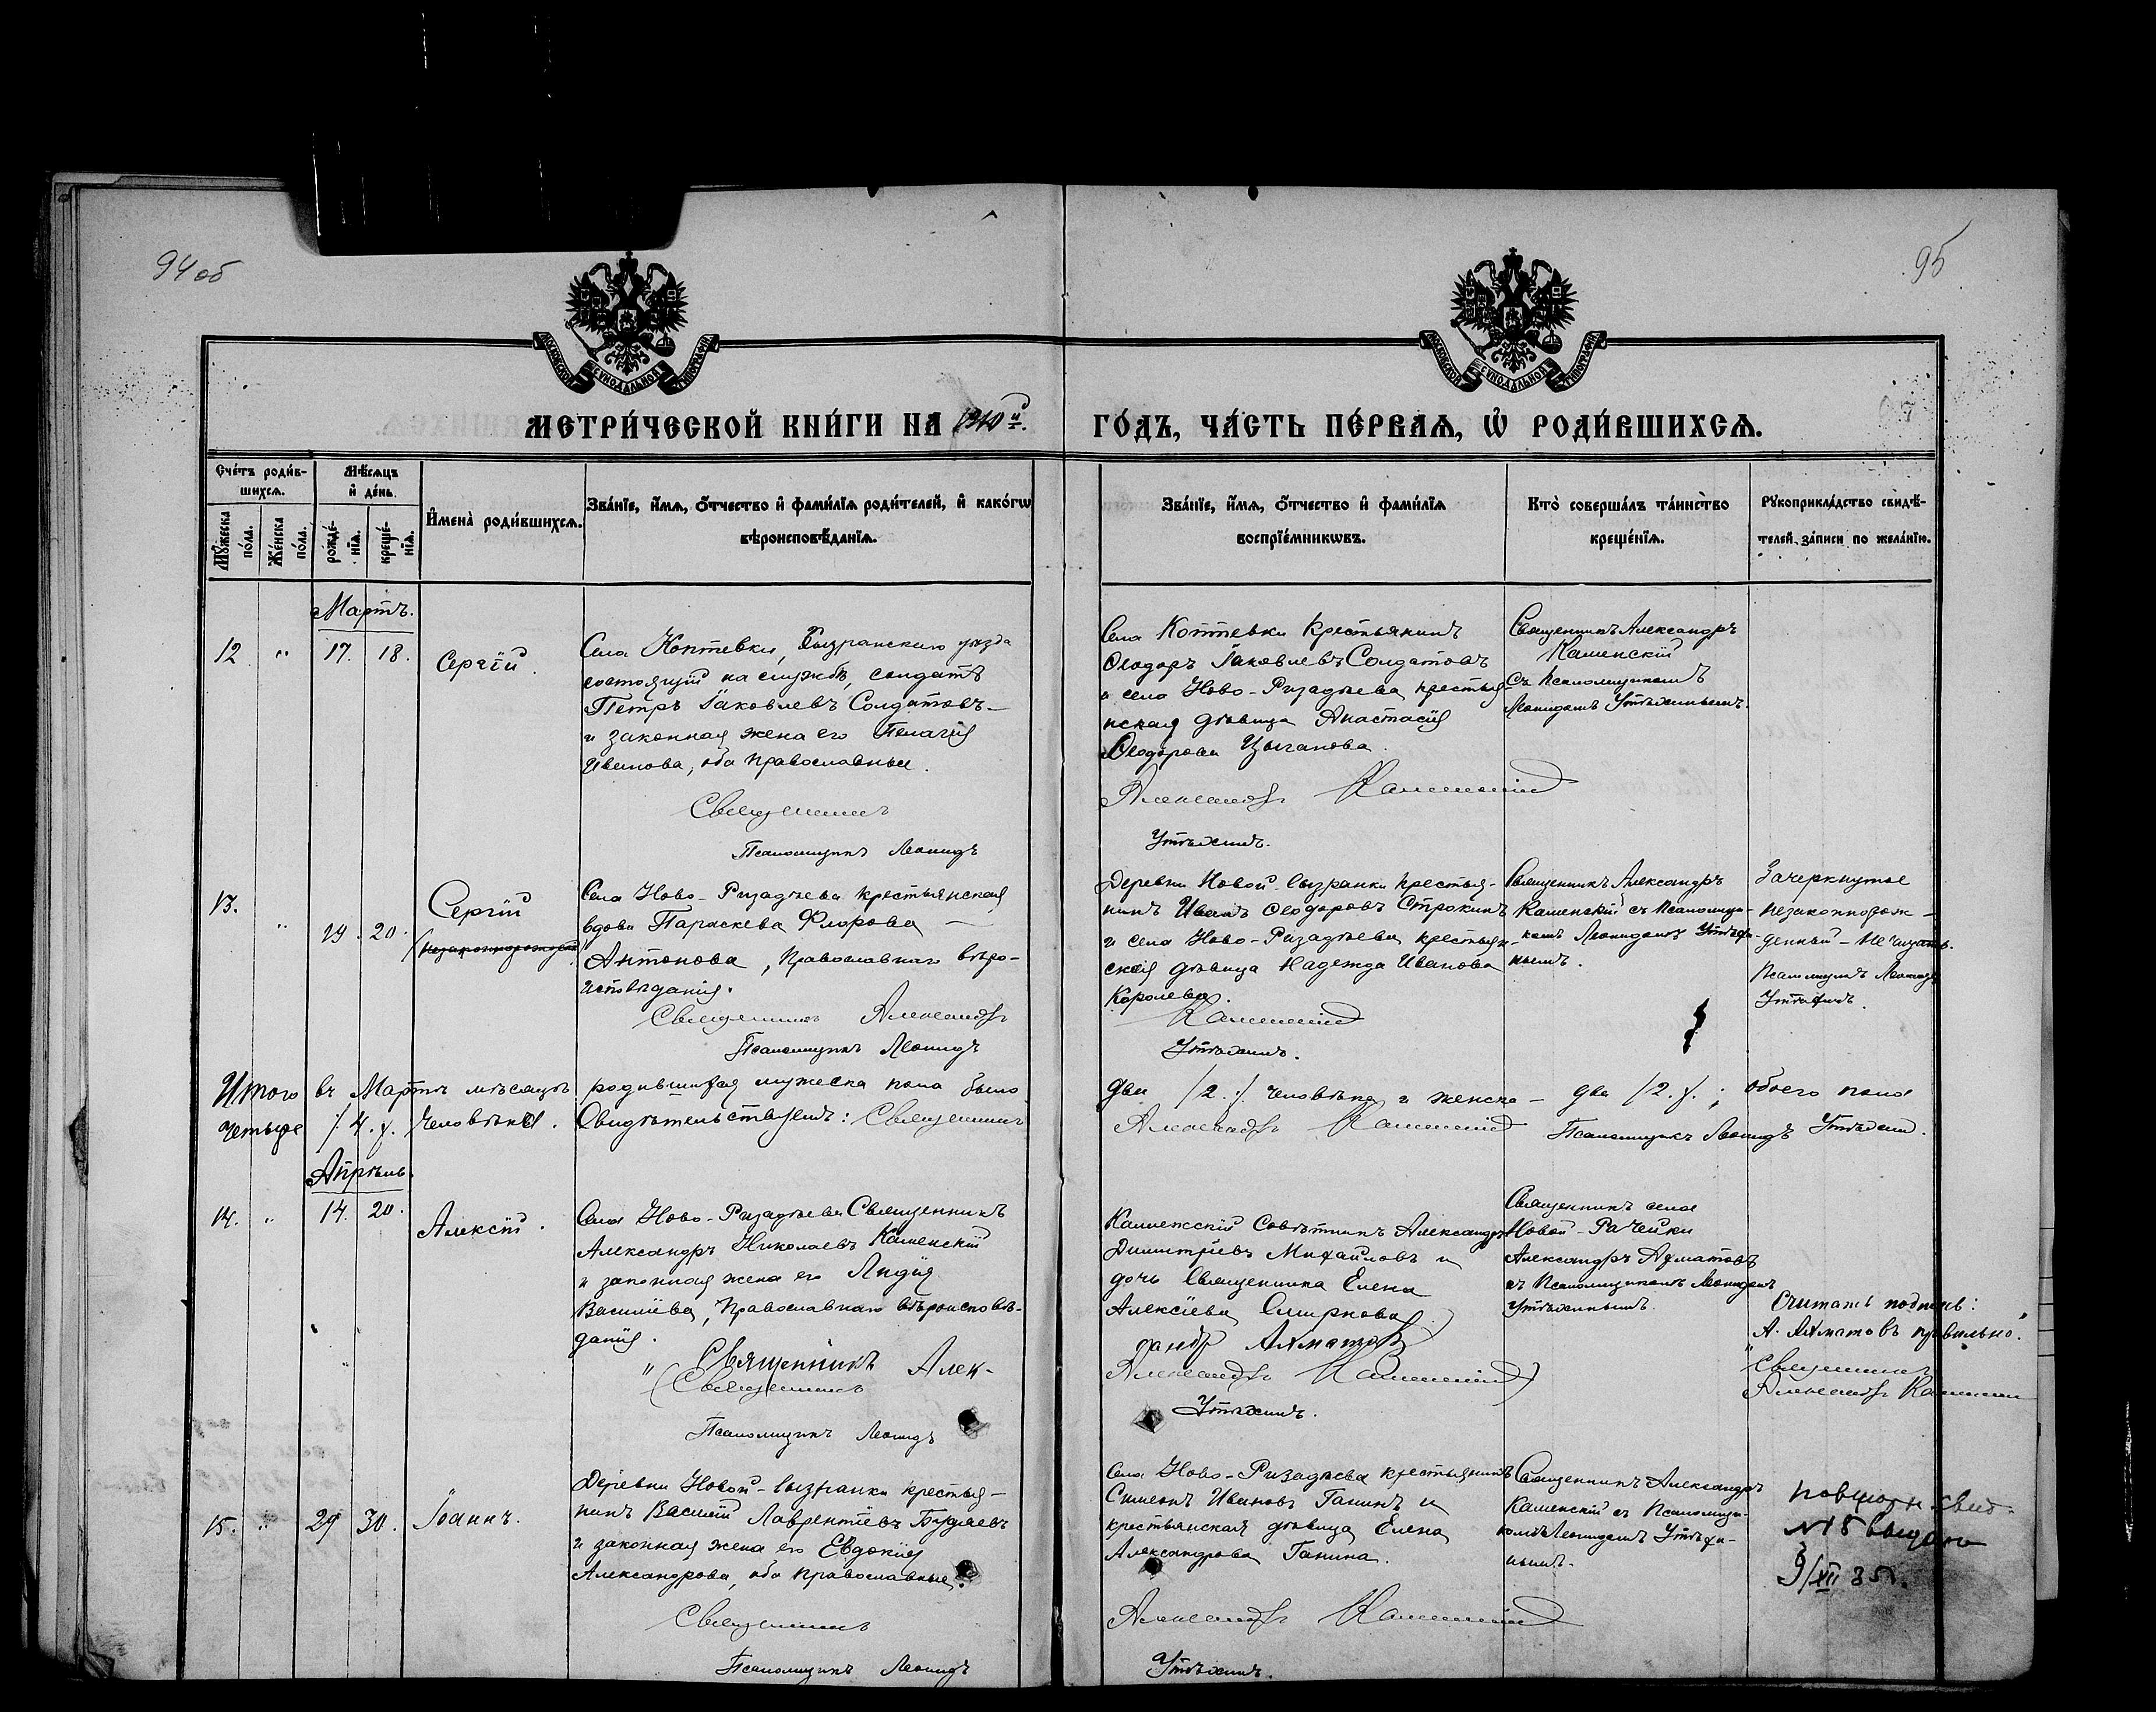 94 об
95
МОСКОВСКОЙ СѴНОДАЛЬНОЙ ТИПОГРАФІИ
МОСКОВСКОЙ СѴНОДАЛЬНОЙ ТИПОГРАФІИ
МЕТРИ́ЧЕСКОЙ КНИ́ГИ НА 1910й
ГО́ДЪ, ЧА́СТЬ ПЕ́РВАѦ, Ѡ҆ РОДИ́ВШИХСѦ.
Сче́тъ роди́в-
шихсѧ.
Мѣ́сѧцъ
и҆ де́нь.
Мꙋ́жеска
по́ла.
Же́нска
по́ла.
рожде́-
нїѧ.
креще́-
нїѧ.
И҆мена̀ роди́вшихсѧ.
Зва́нїе, и҆́мѧ, ѻ҆́тчество и҆ фами́лїѧ роди́телей, и҆ како́гѡ
вѣроисповѣ́данїѧ.
Зва́нїе, и҆́мѧ, ѻ҆́тчество и҆ фами́лїѧ
воспрїе́мникѡвъ.
Кто̀ соверша́лъ та́инство
креще́нїѧ.
Рꙋкоприкла́дство свидѣ́-
телей за́писи по жела́нїю.
Мартъ.
12 " 17. 18. Сергій.
Села Коптевки, Сызранскаго уѣзда
состоящій на службѣ, солдатъ
Петръ Іаковлевъ Солдатовъ
и законная жена его Пелагія
Иванова, оба православные.
Священникъ
Псаломщикъ Леонидъ
Села Коптевки крестьянинъ
Ѳеодоръ Іаковлевъ Солдатовъ
и села Ново-Ризадѣева крестья-
нская дѣвица Анастасія
Ѳеодорова Цыганова.
Александръ Каменскій
Утѣхинъ.
Священникъ Александръ
Каменскій
съ Псаломщикомъ
Леонидомъ Утѣхинымъ.
13. " 19. 20. Сергій
(незаконнорожденный)
Села Ново-Ризадѣева крестьянская
вдова Параскева Флорова
Антонова, Православнаго вѣро-
исповѣданія.
Священникъ Александръ
Псаломщикъ Леонидъ
Деревни Новой-Сызранки крестья-
нинъ Иванъ Ѳеодоровъ Строкинъ
и села Ново-Ризадѣева крестьян-
ская дѣвица Надежда Иванова
Королева.
Каменскій
Утѣхинъ.
Священникъ Александръ
Каменскій съ Псаломщи-
комъ Леонидомъ Утѣхи-
нымъ.
Зачеркнутое
незаконнорож-
денный - не читать.
Псаломщикъ Леонидъ
Утѣхинъ.
Итого въ Мартѣ мѣсяцѣ родившихся мужеска пола было
два /2./ человѣка и женска - два /2./; обоего пола
четыре /4./ человѣка. Свидѣтельствуемъ: Священникъ
Александръ Каменскій Псаломщикъ Леонидъ Утѣхинъ.
Апрѣль.
14. " 14. 20. Алексій.
Села Ново-Ризадѣева Священникъ
Александръ Николаевъ Каменскій
и законная жена его Лидія
Василіева, Православнаго вѣроисповѣ-
данія.
" Священникъ Алек-
(Священникъ
Псаломщикъ Леонидъ
Коллежскій Совѣтникъ Александръ
Димитріевъ Михайловъ и
дочь Священника Елена
Алексіева Смирнова.
сандръ Ахматовъ
Александръ Каменскій)
Утѣхинъ.
Священникъ села
Новой-Рачейки
Александръ Ахматовъ
съ Псаломщикомъ Леонидомъ
Утѣхинымъ.
Считать подпись:
А. Ахматовъ правильно.
"Священникъ
Александръ Каменскій
15. " 29 30. Іоаннъ.
Деревни Новой-Сызранки крестья-
нинъ Василій Лаврентіевъ Будаевъ
и законная жена его Евдокія
Александрова, оба православные.
Священникъ
Псаломщикъ Леонидъ
Села Ново-Ризадѣева крестьянинъ
Симеонъ Ивановъ Ганинъ и
крестьянская дѣвица Елена
Александрова Ганина.
Александръ Каменскій
Утѣхинъ.
Священникъ Александръ
Каменскій съ Псаломщи-
комъ Леонидомъ Утѣхи-
нымъ.
повторн. свид.
№ 15 выдано
9/XII 35 г.